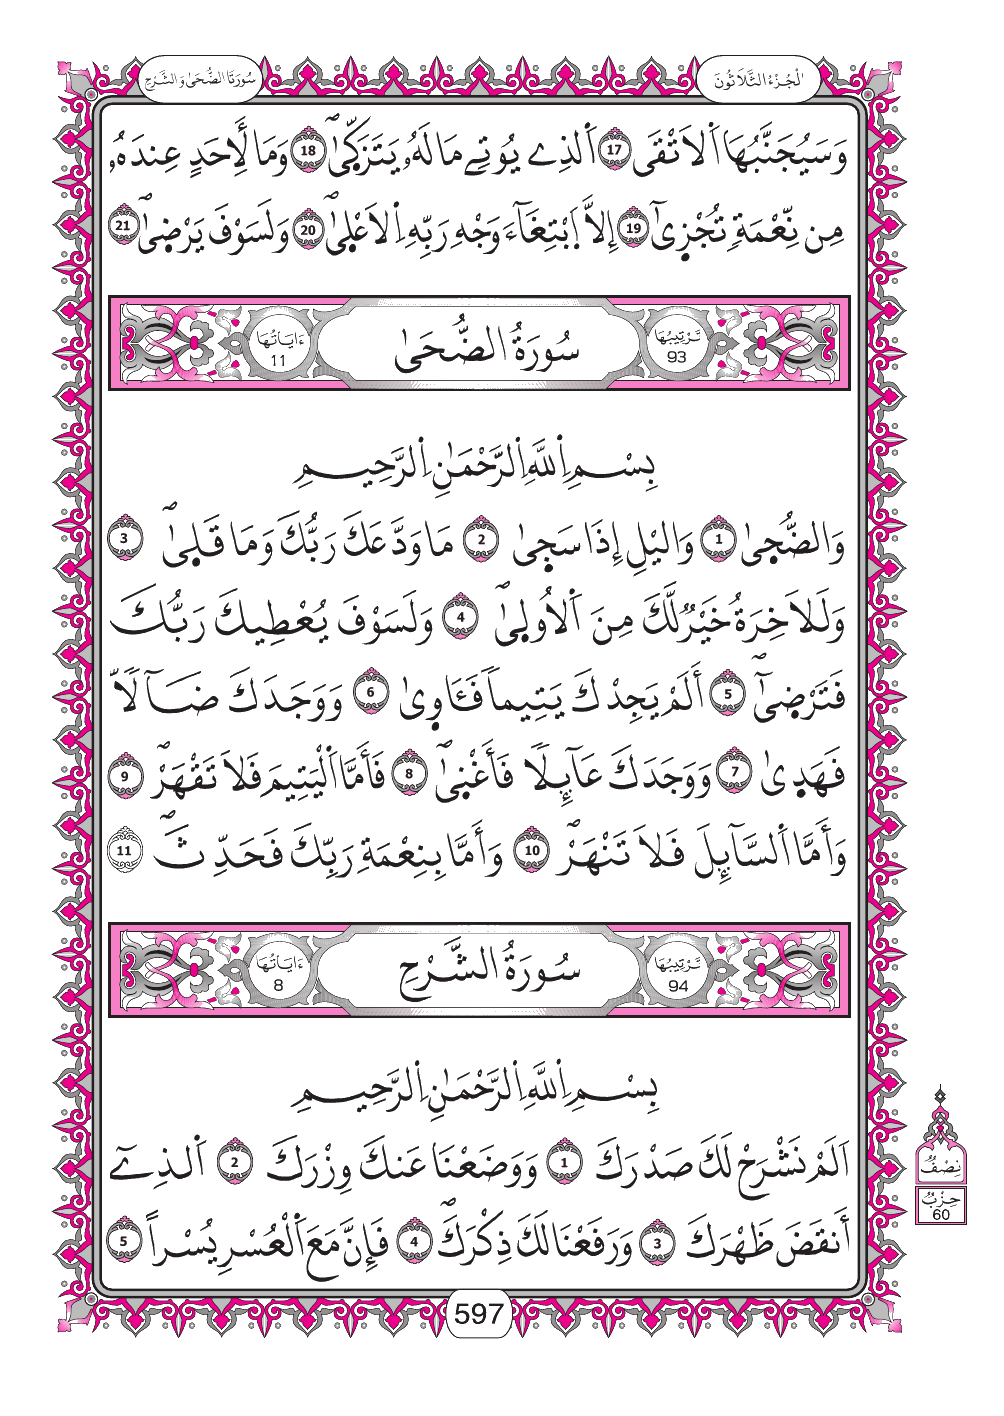 سُورَتَا الضُّحَىٰ وَالشَّرْحِ
اَلْجُزْءُ الثَّلَاثُونَ
وَسَيُجَنَّبُهَا اَ۬لَاتْقَى 17 اَ۬لذِے يُوتِے مَالَهُۥ يَتَزَكّ۪ىٰۖ 18 وَمَا لِأَحَدٍ عِندَهُۥ
مِن نِّعْمَةٖ تُجْز۪ىٰٓ 19 إِلَّا اَ۪بْتِغَآءَ وَجْهِ رَبِّهِ اِ۬لَاعْل۪ىٰۖ 20 وَلَسَوْفَ يَرْض۪ىٰۖ 21
تَرْتِيبُهَا 93 سُورَةُ الضُّحَىٰ ءَايَاتُهَا 11
بِسْمِ اِ۬للَّهِ اِ۬لرَّحْمَٰنِ اِ۬لرَّحِيمِ
وَالضُّح۪ىٰ 1 وَاليْلِ إِذَا سَج۪ىٰ 2 مَا وَدَّعَكَ رَبُّكَ وَمَا قَل۪ىٰۖ 3
وَلَلَاخِرَةُ خَيْرٞ لَّكَ مِنَ اَ۬لُاول۪ىٰۖ 4 وَلَسَوْفَ يُعْطِيكَ رَبُّكَ
فَتَرْض۪ىٰٓۖ 5 أَلَمْ يَجِدْكَ يَتِيماٗ فَـَٔاو۪ىٰ 6 وَوَجَدَكَ ضَآلّاٗ
فَهَد۪ىٰ 7 وَوَجَدَكَ عَآئِلاٗ فَأَغْن۪ىٰۖ 8 فَأَمَّا اَ۬لْيَتِيمَ فَلَا تَقْهَرْۖ 9
وَأَمَّا اَ۬لسَّآئِلَ فَلَا تَنْهَرْۖ 10 وَأَمَّا بِنِعْمَةِ رَبِّكَ فَحَدِّثْۖ 11
تَرْتِيبُهَا 94 سُورَةُ الشَّرْحِ ءَايَاتُهَا 8
بِسْمِ اِ۬للَّهِ اِ۬لرَّحْمَٰنِ اِ۬لرَّحِيمِ
أَلَمْ نَشْرَحْ لَكَ صَدْرَكَ 1 وَوَضَعْنَا عَنكَ وِزْرَكَ 2 اَ۬لذِےٓ
أَنقَضَ ظَهْرَكَ 3 وَرَفَعْنَا لَكَ ذِكْرَكَۖ 4 فَإِنَّ مَعَ اَ۬لْعُسْرِ يُسْراً 5
نِصْفُ
حِزْبُ
60
597